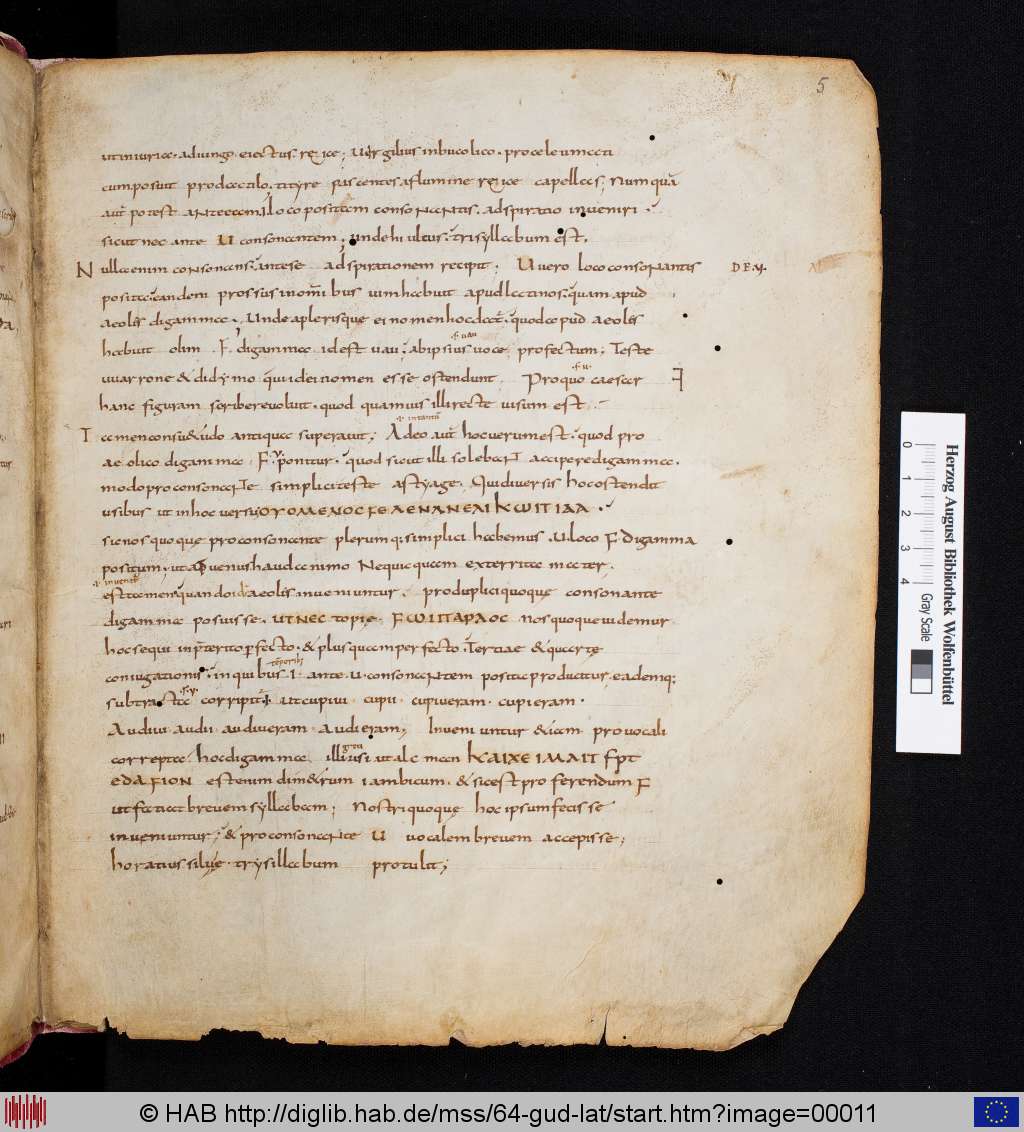 5
ut iniurica· adiungo· eiectus· reice; Vergilius in bucolico· proceleumaticum
cum posuit pro dactilo· tityre pascentes a flumine reice capellas; Numquā
aut potest ante eam loco positam consonantis· adspiratio inveniri·
sicut nec ante U consonantem; unde hiulcus· trisyllabum est.
Nulla enim consonans· ante se adspirationem recipit; U vero loco consonantis
DE.V.
posita· eandem prossus in omībus uim habuit apud latinos· quam apud
aeoles digamma·; Unde a plerisque ei nomen hoc dat· quod apud aeoles
habuit olim ·F· digamma id est uau; ab ipsius uoce profectum; Teste
.s. uau
uuarrone & didymo qui id ei nomen esse ostendunt Pro quo caesar
.s. u.
hanc figuram scribere voluit· quod quamuis illi recte uisum est·
Tamen consu&udo antiqua superauit; Adeo aut hoc uerum est· quod pro
aeolico digamma F· u ponitur· quod sicut illi solebant accipere digamma·
modo pro consonante simplici teste astyage· Qui diversis hoc ostendit
usibus ut in hoc versu ΟΡΟΜΕΝΟC FΕΛΕΝΑΝ ΕΛΙΚωΠΙΔΑ·
sic nos quoque pro consonante plerumq; simplici habemus· U loco F digamma
positum; ut at venus haud animo Nequicquam exterrita mater·
est tamen quando id aeolis inveniuntur· pro duplici quoque consonante
digamma posuisse· ut nectopie· FωΙΠΑΡΔΟC nos quoque uidemur
hoc sequi in p̄terito p̄fecto· & plus quam perfecto· Tertiae & quartę
coniugationis· in quibus ·I· ante ·u· consonantem posita producitur, eademq;
subtracta corripit· ut cupiui cupii cupiueram· cupieram·
Audiui· audii audiueram audieram; Inveniuntur &iam pro vocali
correpta hoc digamma illi usi· ut alcman ΚΑΙΧΕΙΜΑΠΥΡΤ
ΕΔΑFΙΟΝ est enim dim&rum iambicum· & sic est proferendum F
ut faciat brevem syllabam; Nostri quoque hoc ipsum fecisse
inveniuntur; & pro consonante U vocalem brevem accepisse;
horatius siluę· trysillabum protulit;
Herzog August Bibliothek Wolfenbüttel
0 1 2 3 4 Gray Scale
© HAB http://diglib.hab.de/mss/64-gud-lat/start.htm?image=00011